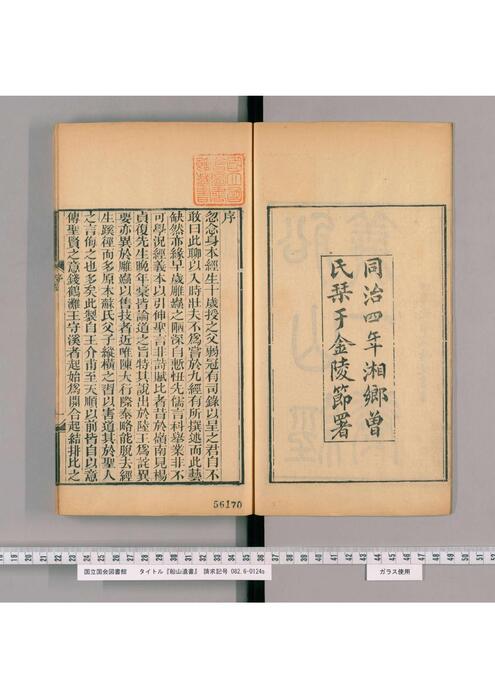 同治四年湘鄉曾
氏栞于金陵節署
國立國
會圖書
館藏書
序
忽念身本經生十歲授之父弱冠有司錄以呈之君自不
敢曰此聊以入時壯夫不爲嘗於九經有所撰述而此藝
缺然亦緣早歲雕蟲之陋深自慙忸先儒言科舉業非不
可學況經義本以引伸聖言非詩賦比者昔於嶺南見楊
貞復先生晚年稾皆論道之旨特其說出於陸王爲詫異
要亦異於雕蟲以售技者近唯陳大行際泰略能脫去經
生蹊徑而多原本蘇氏父子縱橫之習以害道其於聖人
之言侮之也多矣此製自王介甫至天順以前皆自以意
傳聖賢之意錢鶴灘王守溪者起始爲開合起結排比之
56170
国立国会図書館 タイトル『船山遺書』 請求記号 082.6-0124s
ガラス使用